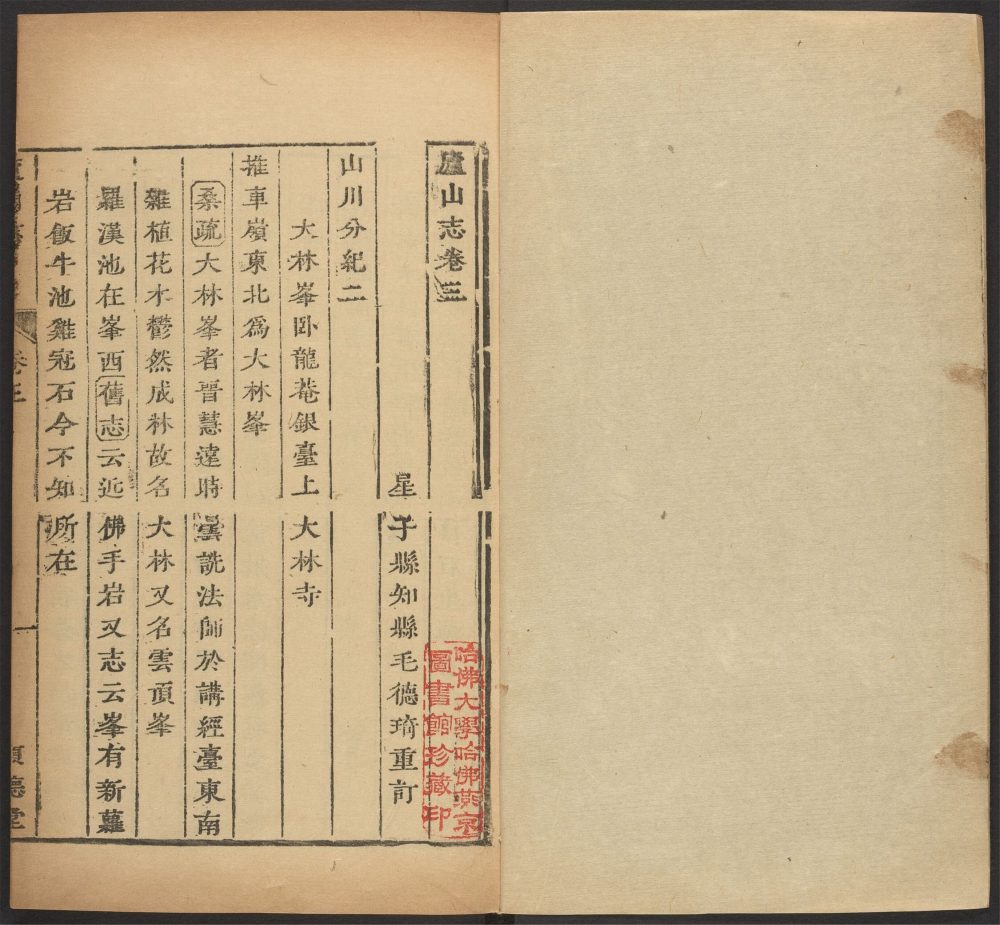 廬山志卷三
星子縣知縣毛德琦重訂
山川分紀二
大林峯臥龍菴銀臺上大林寺
推車嶺東北爲大林峯
桑疏大林峯者晋慧遠時曇詵法師於講經臺東南
雜植花木鬱然成林故名大林又名雲頂峯
羅漢池在峯西舊志云近佛手岩又志云峯有新羅
岩飯牛池雞冠石今不知所在
卷三
一
順德堂
哈佛大學哈佛燕京
圖書館珍藏印